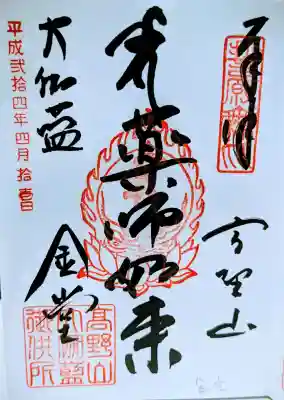 奉拝
高野山
薬師如来
大伽藍
金堂
平成弐拾四年四月拾壱日
高野山
大伽藍
御供所